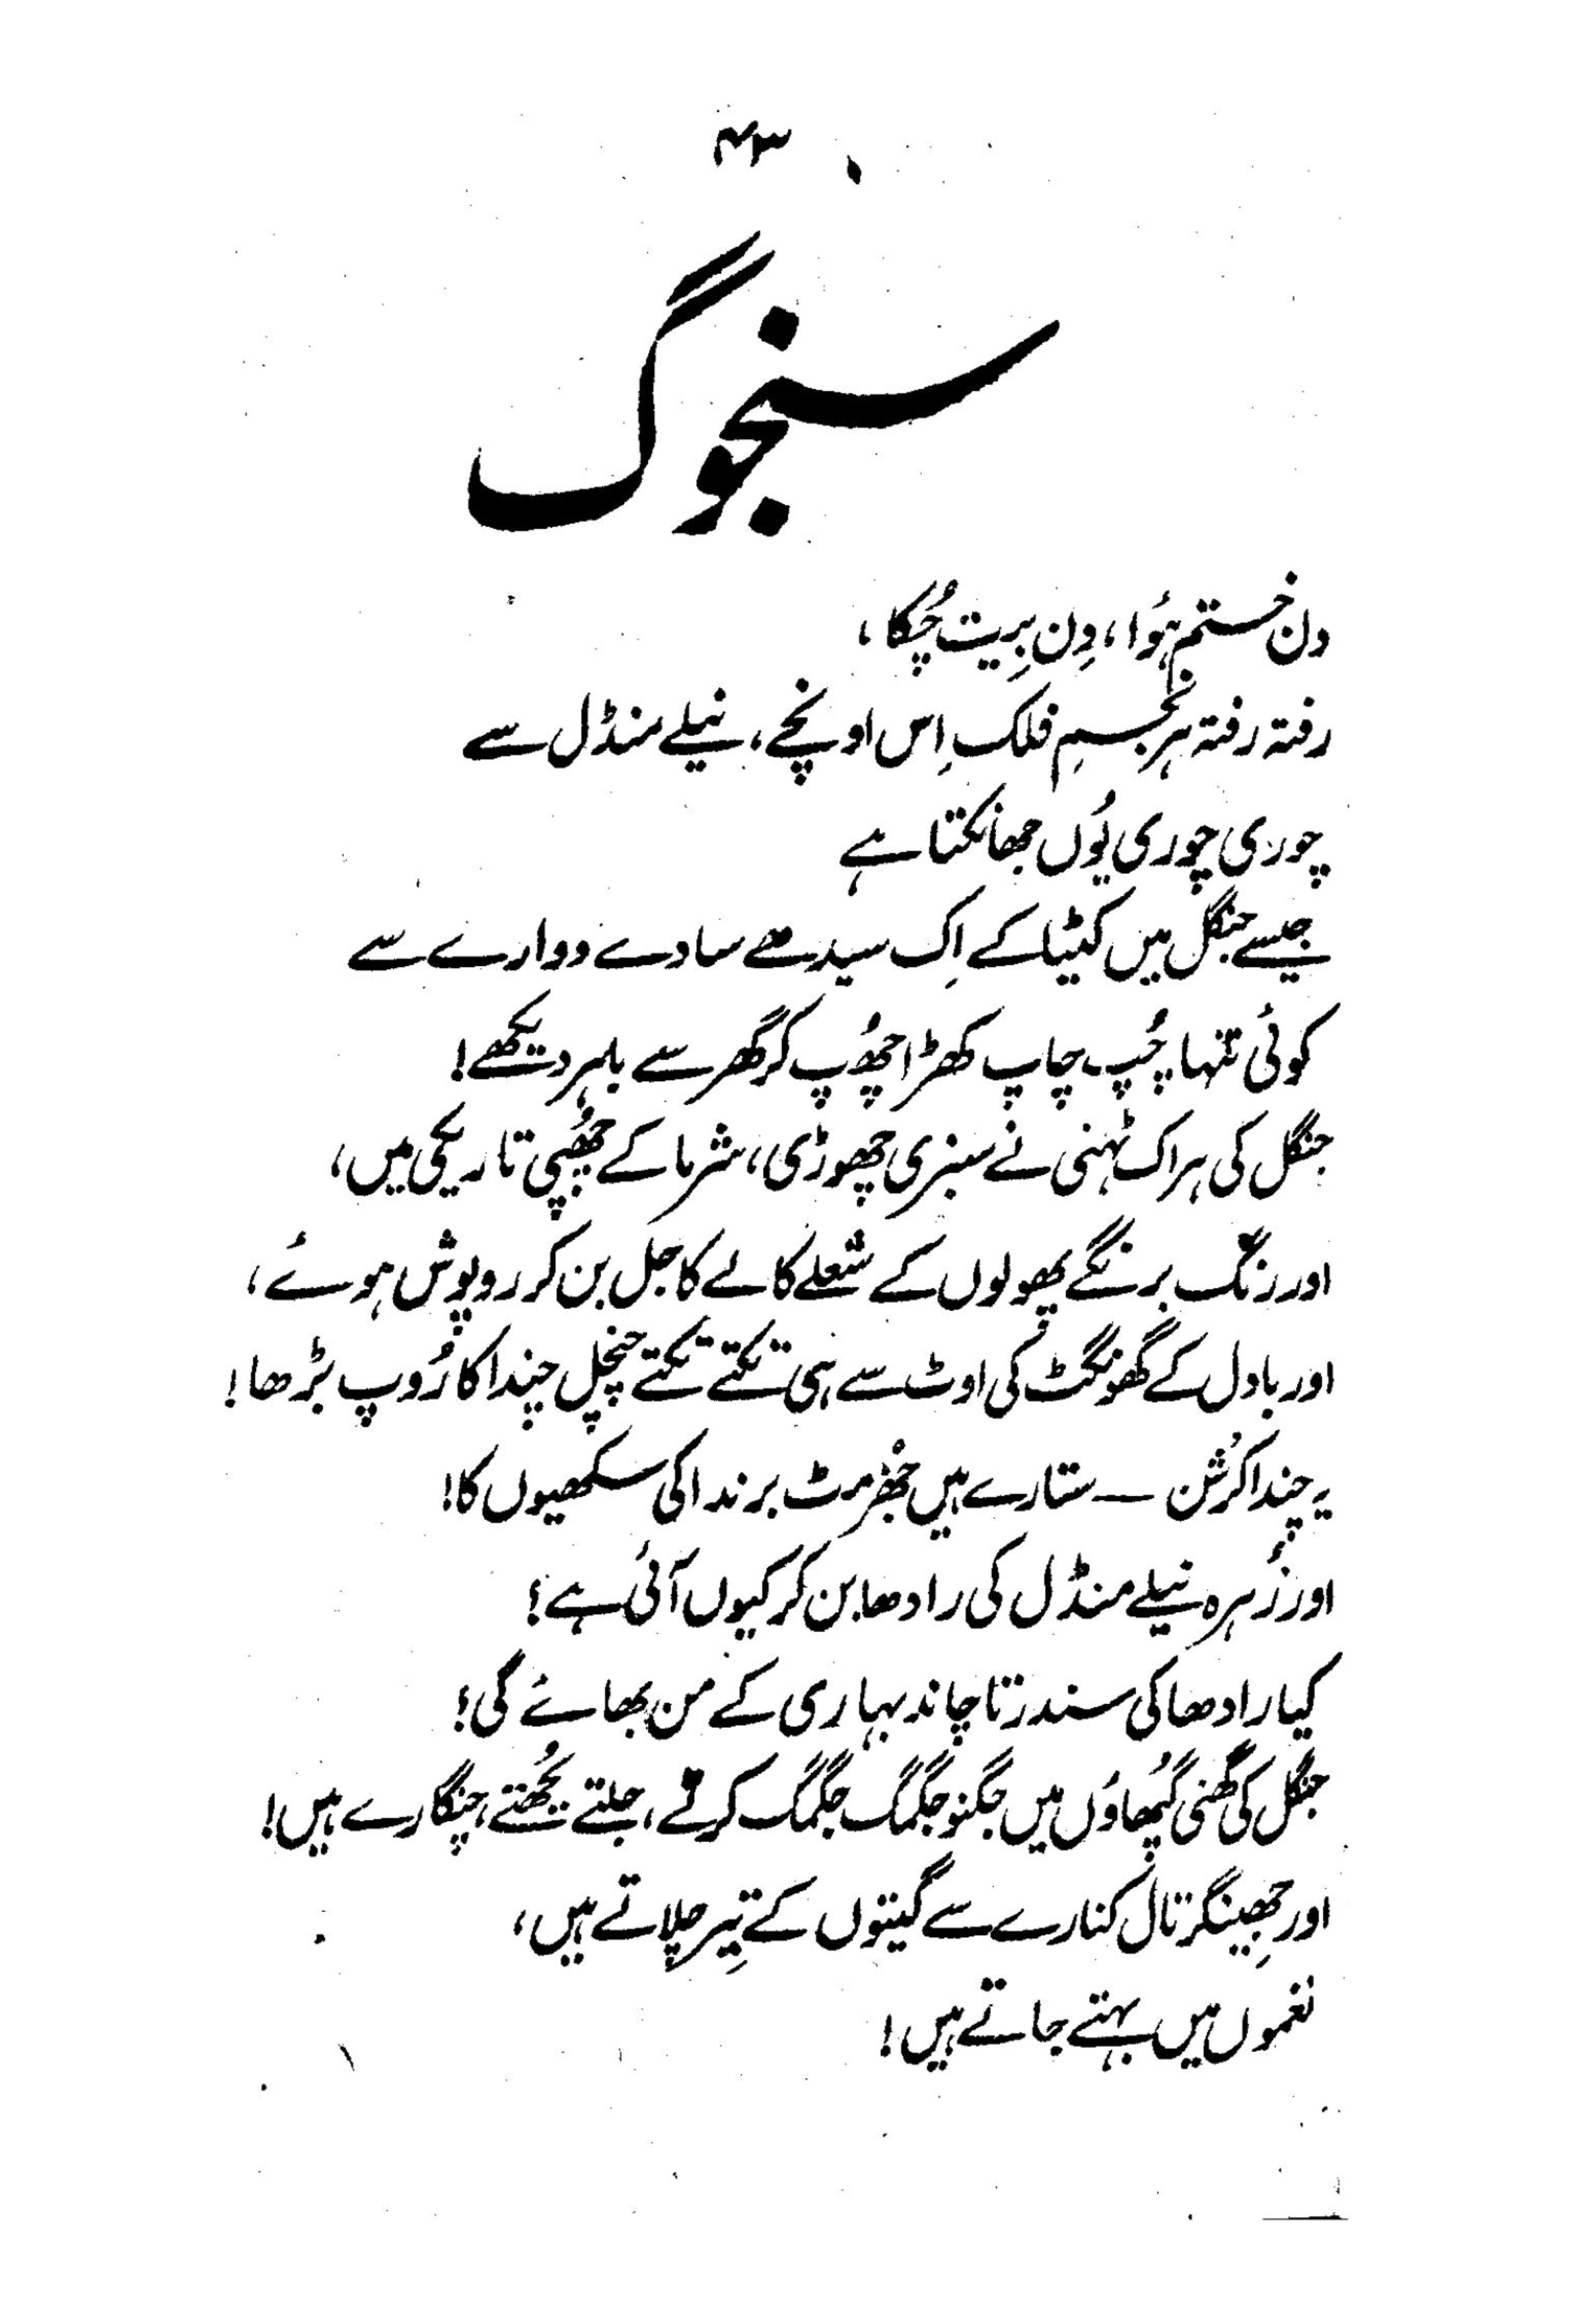 ۴۳
سنجوگ
دن ختم ہؤا، دِن بِیت چُکا،
رفتہ رفتہ ہر نجمِ فلک اِس اونچے، نیلے منڈل سے
چوری چوری یُوں جھانکتا ہے
جیسے جنگل میں کٹیا کے اِک سیدھے سادے دوارے سے
کوئی تنہا چُپ چاپ کھڑا چھُپ کر گھر سے باہر دیکھے!
جنگل کی ہر اک ٹہنی نے سبزی چھوڑی، شرما کے چھُپی تاریکی میں،
اور رنگ برنگے پھولوں کے شعلے کالے کاجل بن کر روپوش ہوئے،
اور بادل کے گھونگٹ کی اوٹ سے ہی تکتے تکتے چنچل چندا کا رُوپ بڑھا!
یہ چندا کرشن — ستارے ہیں جھُرمٹ برندا کی سکھیوں کا!
اور زُہرہ نیلے منڈل کی رادھا بن کر کیوں آئی ہے؟
کیا رادھا کی سندرتا چاند بہاری کے من بھائے گی؟
جنگل کی گھنی گپھاؤں میں جگنو جگمگ جگمگ کرتے، جلتے بجُھتے چنگارے ہیں!
اور جِھینگر تال کنارے سے گیتوں کے تِیر چلاتے ہیں،
نغموں میں بہتے جاتے ہیں!